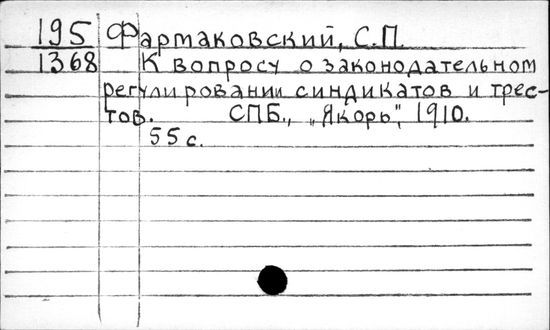 195 Фармаковский, С.П.
1368 К вопросу о законодательном
регулировании синдикатов и трес-
тов. СПБ., „Якорь", 1910.
55 с.